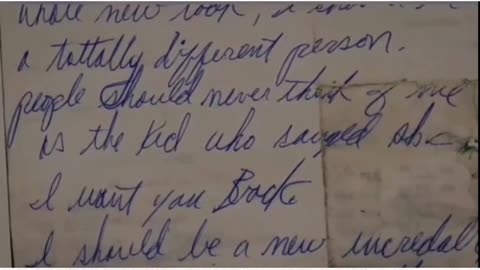 whole new look, I
a tottally different person.
people should never think of me
as the kid who sanged ab
I want you Back.
I should be a new incredabl